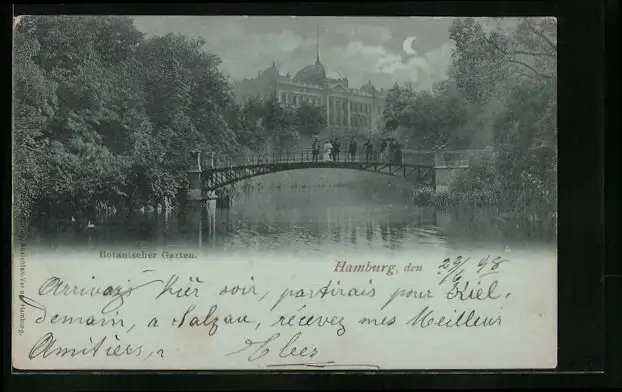 Botanischer Garten.
Hamburg, den 29/6 98
Arrivays hier soir, partirais pour Kiel,
demain, a Salzau, récevez mes Meilleur
Amitiers,